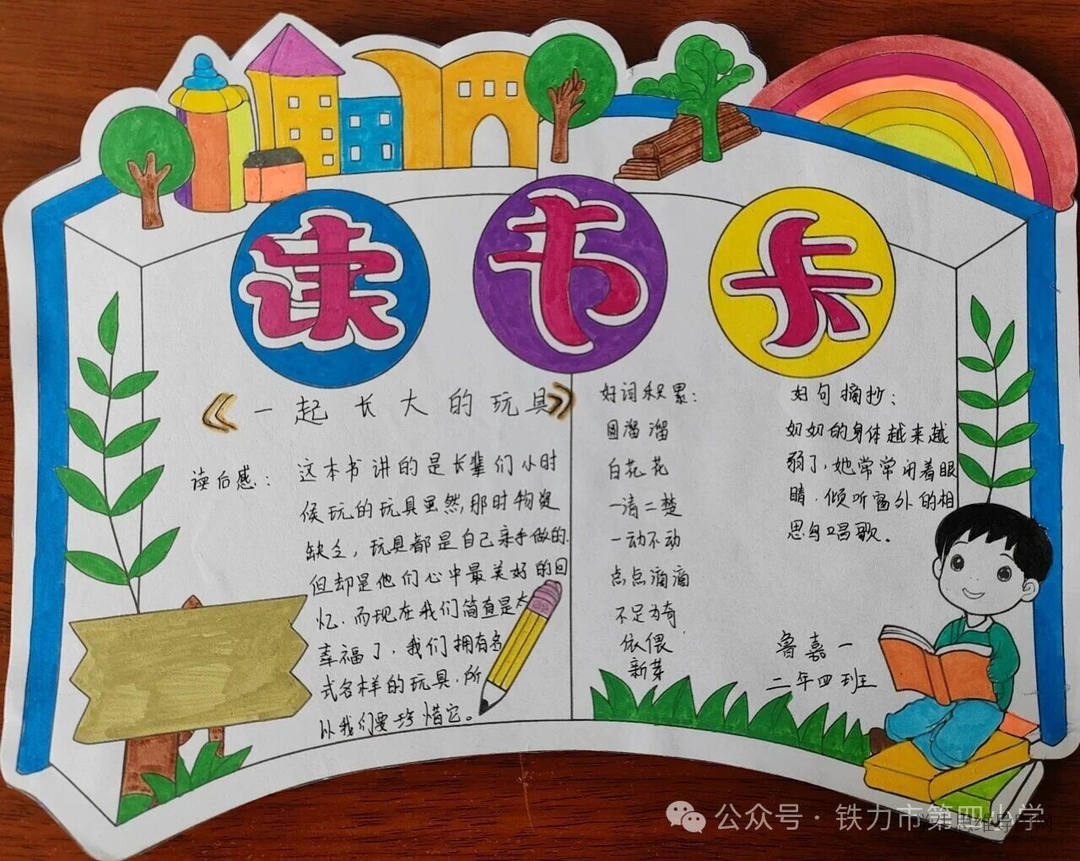 读书卡
《一起长大的玩具》
读后感：这本书讲的是长辈们小时
候玩的玩具虽然,那时物资
缺乏，玩具都是自己亲手做的.
但却是他们心中最美好的回
忆.而现在我们简直是太
幸福了，我们拥有各
式各样的玩具,所
以我们要珍惜它。
好词积累：
圆溜溜
白花花
一清二楚
一动不动
点点滴滴
不足为奇
依偎
新芽
好句摘抄：
奶奶的身体越来越
弱了,她常常闭着眼
睛,倾听窗外的相
思鸟唱歌.
鲁嘉一
二年四班
公众号·铁力市第四小学